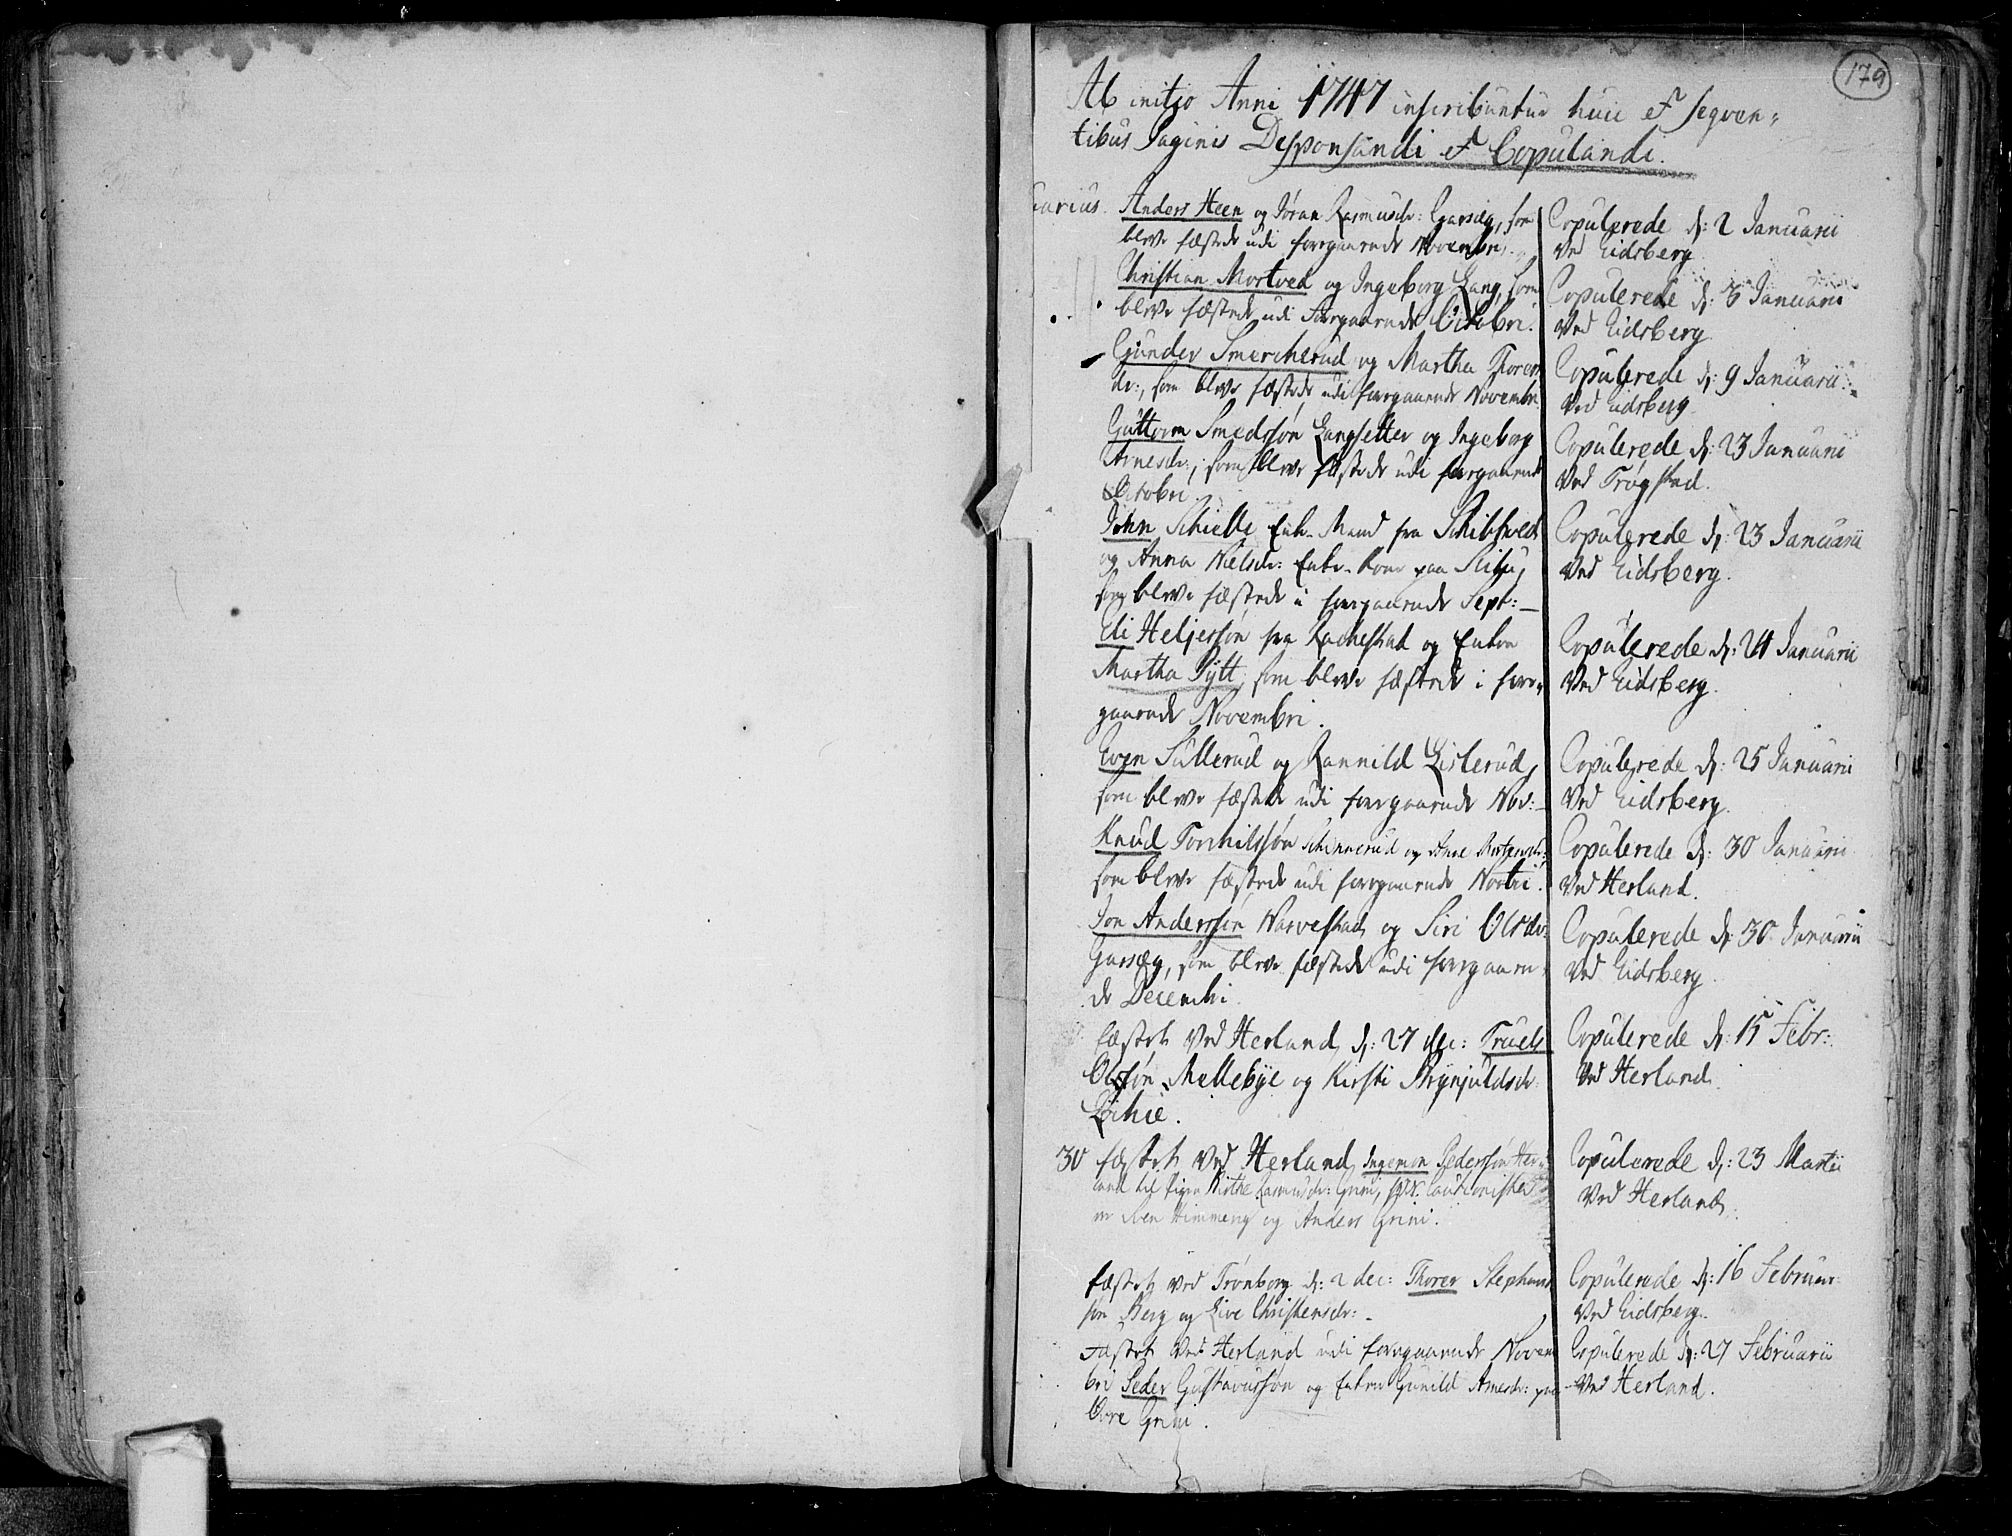 179
Ab initio Anni 1747 inscribuntur huic et seqven-
tibus Paginis Desponsandi et Copulandi.
uarius.
Anders Heen og Jøran Rasmusdr: Garseg, som
bleve fæstede udi forrgaarende Novembri.
Copulerede d: 2 Januarii
Ved Eidsberg
Christian Mortved og Ingeborg Lang, som
bleve fæstede udi forrgaarende Octobri.
Copulerede d: 6 Januarii
Ved Eidsberg
Gunder Smercherud og Martha Thores
dr:, som bleve fæstede udi forrgaarende Novembri
Copulerede d: 9 Januarii
Ved Eidsberg
Guttorm Smedssøn Langsetter og Ingeborg
Arnesdr:, som bleve fæstede udi forrgaarende
Octobri.
Copulerede d: 23 Januarii
Ved Trøgstad.
John Schielle Enke-Mand fra Schibtved
og Anna Nielsdr: Enke-Kone paa
som bleve fæstede i forrgaarende Sept:
Copulerede d: 23 Januarii
Ved Eidsberg.
Eli Heljerssøn fra Rachestad og Enken
Martha Pytt, som bleve fæstede i forr-
gaarende Novembri.
Copulerede d: 24 Januarii
Ved Eidsberg.
Even Sullerud og Rannild Listerud,
som bleve fæstede udi forrgaarende Nov:
Copulerede d: 25 Januarii
Ved Eidsberg.
Knud Tormilssøn Schinnerud og Anne
som bleve fæstede udi forrgaarende Novbri.
Copulerede d: 30 Januarii
Ved Herland.
Jon Anderssøn Narvestad og Siri Olsdr:
Garseg, som bleve fæstede udi forrgaaren-
de Decembri.
Copulerede d: 30 Januarii
Ved Eidsberg
fæstet Ved Herland d: 27 dec: Truels
Olssøn Mellebye og Kirsti Brynjuldsdr:
Løchie.
Copulerede d: 15 Febr:
Ved Herland.
30 fæstet Ved Herland Ingemon Pederssøn Her-
land til Pigen Birthe Rasmusdr: Grini, Cautionister
er Sven Himmerig og Anders Grini.
Copulerede d: 23 Martii
Ved Herland.
fæstet ved Trønborg d: 2 dec: Thorer Stephans
søn Berg og Live Christensdr:
Copulerede d: 16 Februar:
Ved Eidsberg.
Fæstet Ved Herland udi forrgaarende Novem
bri Peder Gustavussøn og Enken Gunild Arnesdr: paa
Øvre Grini.
Copulerede d: 27 Februarii
Ved Herland.